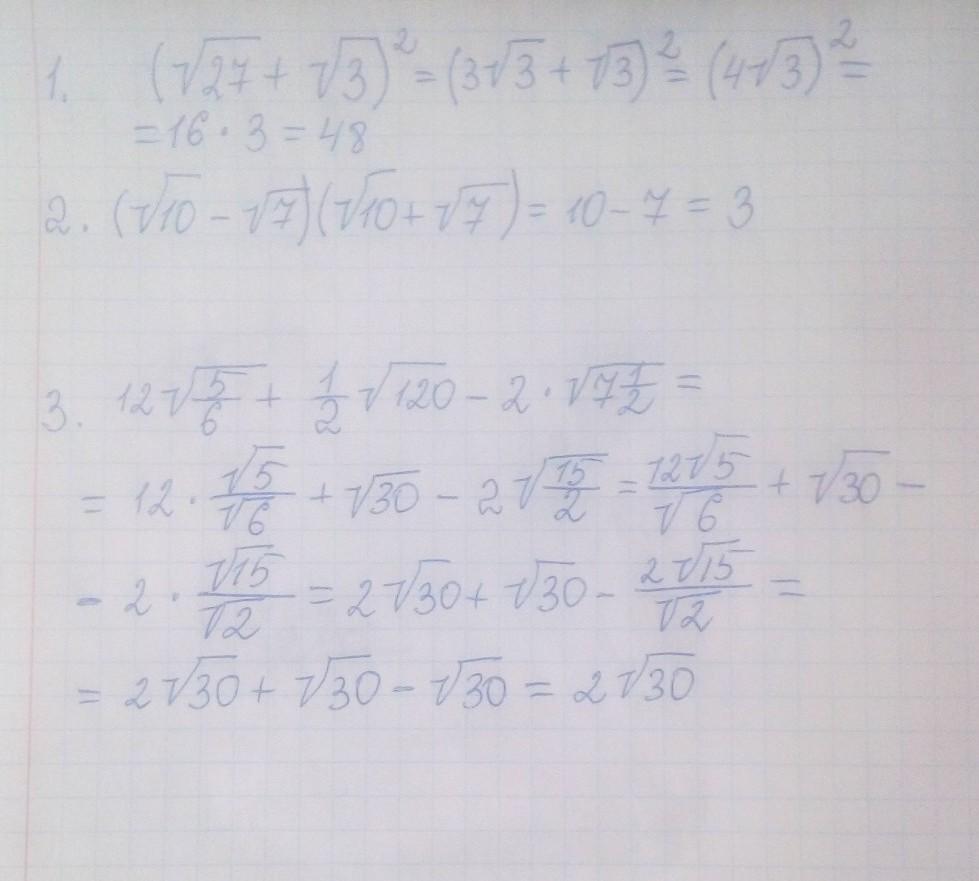 1. (√27 + √3)² = (3√3 + √3)² = (4√3)² =
= 16 · 3 = 48
2. (√10 − √7)(√10 + √7) = 10 − 7 = 3
3. 12√(5/6) + 1/2 √120 − 2 · √(7 1/2) =
= 12 · √5/√6 + √30 − 2√(15/2) = 12√5/√6 + √30 −
− 2 · √15/√2 = 2√30 + √30 − 2√15/√2 =
= 2√30 + √30 − √30 = 2√30